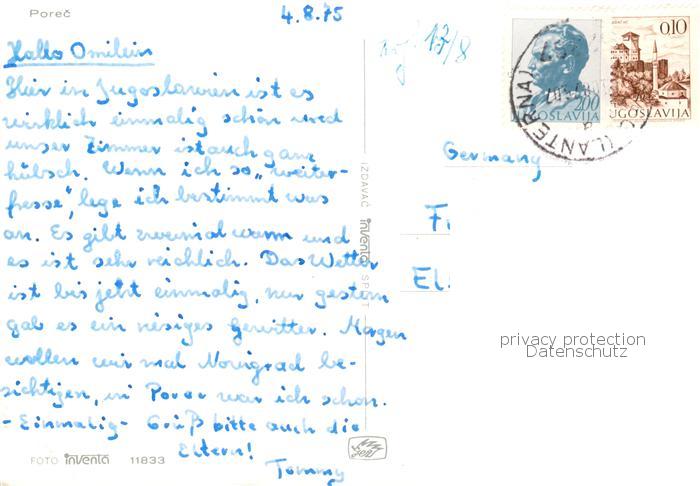 Poreč
4.8.75
Hallo Omilein
Hier in Jugoslawien ist es
wirklich einmalig schön und
unser Zimmer ist auch ganz
hübsch. Wenn ich so „weiter-
fresse", lege ich bestimmt was
an. Es gibt zweimal warm und
es ist sehr reichlich. Das Wetter
ist bis jetzt einmalig, nur gestern
gab es ein riesiges Gewitter. Morgen
wollen wir mal Novigrad be-
sichtigen, in Porec war ich schon.
- Einmalig - Grüß bitte auch die
Eltern!
Tommy
FOTO inventa 11833
IZDAVAČ inventa SPLIT
13/8
200
JUGOSLAVIJA
0,10
JUGOSLAVIJA
(LANTERNA)
Germany
F
El
privacy protection
Datenschutz